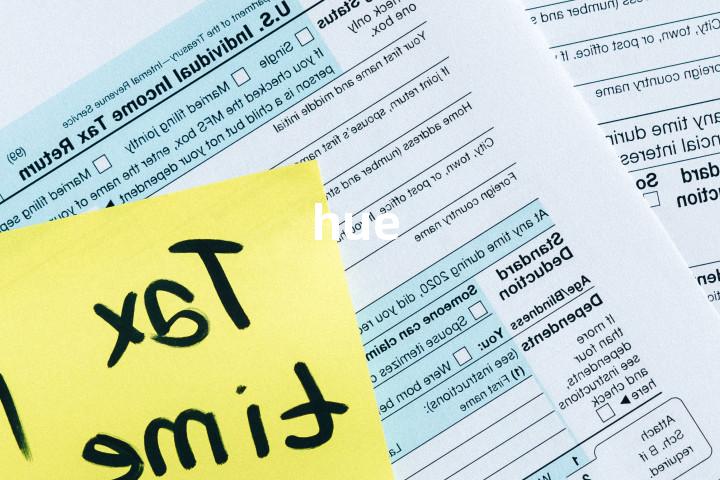 partment of the Treasury—Internal Revenue Service (99)
U.S. Individual Income Tax Return
Status
heck only
one box.
Single Married filing jointly Married filing sep
If you checked the MFS box, enter the name of
person is a child but not your dependent
Your first name and middle initial
If joint return, spouse's first name and middle
Home address (number and
City, town, or post office. If
Foreign country name
At any time during 2020, did you
Standard
Deduction
Someone can claim
You:
Spouse itemizes
Age/Blindness
You:
Were
Dependents
(see instructions):
If more
than four
dependents,
see instructions
and check
here
(1) First name
La
Attach
Sch. B if
required.
1
ess (number and s
City, town, or post office. If
oreign country name
any time durin
ancial interes
dard
uction
So
hue
Tax
time